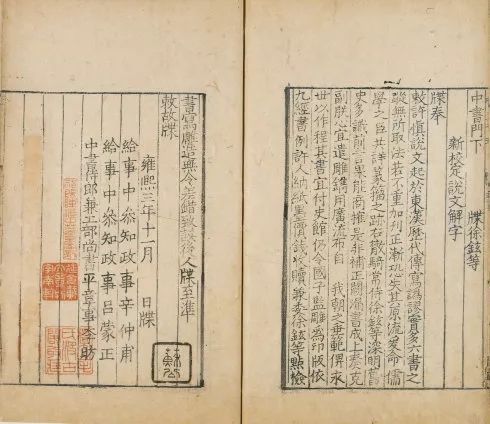 中書門下　牒徐鉉等
新校定說文解字
牒奉
敕許慎說文起於東漢歷代傳寫譌謬實多六書之
蹤無所取法若不重加刊正漸恐失其原流爰命儒
學之臣共詳篆籀之跡右散騎常侍徐鉉等深明舊
史多識前言果能商榷是非補正闕漏書成上奏克
副朕心宜遣雕鐫用廣流布自　我朝之垂範俾永
世以作程其書宜付史館仍令國子監雕爲印版依
九經書例許人納紙墨價錢收贖兼委徐鉉等點檢
書寫雕造無令差錯致誤後人牒至準
敕故牒
雍熙三年十一月　日牒
給事中叅知政事辛仲甫
給事中叅知政事呂蒙正
中書侍郎兼工部尚書平章事李昉